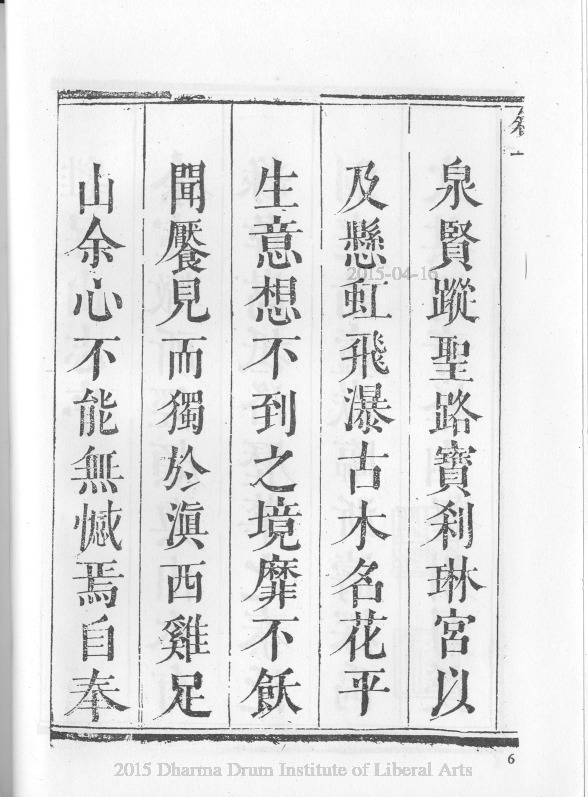 卷一
泉賢蹤聖路寶刹琳宮以
及懸虹飛瀑古木名花平
生意想不到之境靡不飫
聞饜見而獨於滇西雞足
山余心不能無憾焉自奉
2015-04-16
6
2015 Dharma Drum Institute of Liberal Arts